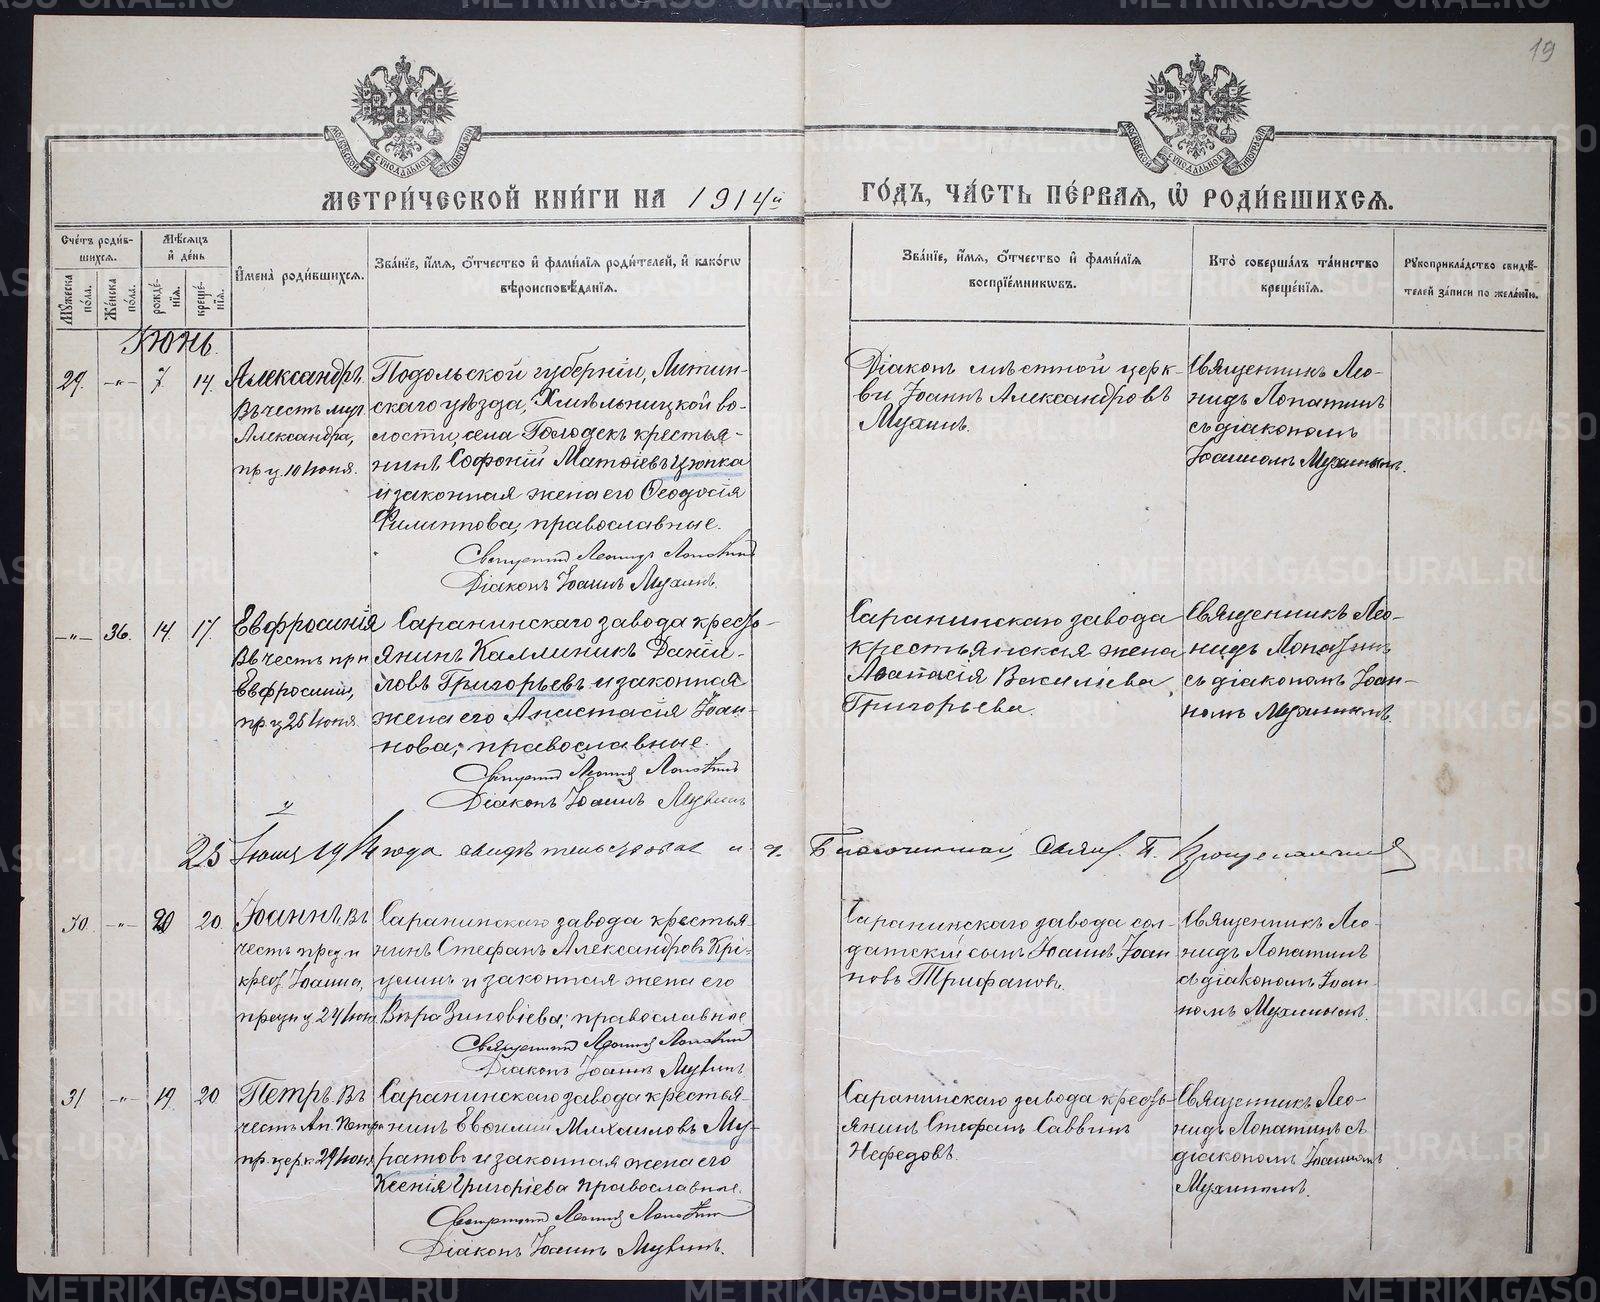 19
МОСКОВСКОЙ СѴНОДАЛЬНОЙ ТИПОГРАФІИ
МОСКОВСКОЙ СѴНОДАЛЬНОЙ ТИПОГРАФІИ
МЕТРИ́ЧЕСКОЙ КНИ́ГИ НА 1914й
ГО́ДЪ, ЧА́СТЬ ПЕ́РВАѦ, Ѡ҆ РОДИ́ВШИХСѦ.
Сче́тъ роди́в-
шихсѧ.
Мѣ́сѧцъ
и҆ де́нь
Мꙋ́жеска
по́ла.
Же́нска
по́ла.
рожде́-
нїѧ.
креще́-
нїѧ.
И҆мена̀ роди́вшихсѧ.
Зва́нїе, и҆́мѧ, ѻ҆́тчество и҆ фами́лїѧ роди́телей, и҆ како́гѡ
вѣроисповѣ́данїѧ.
Зва́нїе, и҆́мѧ, ѻ҆́тчество и҆ фами́лїѧ
воспрїе́мникѡвъ.
Кто̀ соверша́лъ та́инство
креще́нїѧ.
Рꙋкоприкла́дство свидѣ́-
телей за́писи по жела́нїю.
Іюнь.
29. -„- 7. 14. Александръ.
Въ честь муч.
Александра,
пр. ц. 10 Іюня.
Подольской губерніи, Литин-
скаго уѣзда, Хмѣльницкой во-
лости, села Голодекъ крестья-
нинъ Софоній Матѳіевъ Цюпка
и законная жена его Ѳеодосія
Филиппова, православные.
Священникъ Леонидъ Лопатинъ
Діаконъ Іоаннъ Мухинъ.
Діаконъ мѣстной церк-
ви Іоаннъ Александровъ
Мухинъ.
Священникъ Лео-
нидъ Лопатинъ
съ діакономъ
Іоанномъ Мухинымъ.
-„- 36. 14. 17. Евфросинія
Въ честь прп
Евфросиніи,
пр. ц 25 Іюня
Саранинскаго завода кресть-
янинъ Каллиникъ Даніи-
ловъ Григорьевъ и законная
жена его Анастасія Іоан-
нова; православные.
Священникъ Леонидъ Лопатинъ
Діаконъ Іоаннъ Мухинъ
Саранинскаго завода
крестьянская жена
Аѳанасія Василіева
Григорьева.
Священникъ Лео-
нидъ Лопатинъ
съ діакономъ Іоан-
номъ Мухинымъ.
25 Іюня 1914 года свидѣтельствовалъ и. д. Благочиннаго Свящ. П.
30. -„- 20 20. Іоаннъ. Въ
честь пред. и
крест. Іоанна,
пр. ц 24 Іюня
Саранинскаго завода крестья-
нинъ Стефанъ Александровъ Крі-
ушинъ и законная жена его
Вѣра Зиновіева; православные
Священникъ Леонидъ Лопатинъ
Діаконъ Іоаннъ Мухинъ
Саранинскаго завода сол-
датскій сынъ Іоаннъ Іоан
новъ Трифановъ.
Священникъ Лео-
нидъ Лопатинъ
съ діакономъ Іоан-
номъ Мухинымъ.
31 -„- 19. 20. Петръ. Въ
честь Ап. Петра
пр. церк. 29 Іюня
Саранинскаго завода крестья-
нинъ Евѳимій Михаиловъ Му-
ратовъ и законная жена его
Ксенія Григоріева православные.
Священникъ Леонидъ Лопатинъ
Діаконъ Іоаннъ Мухинъ.
Саранинскаго завода кресть-
янинъ Стефанъ Саввинъ
Нефедовъ.
Священникъ Лео-
нидъ Лопатинъ съ
діакономъ Іоанномъ
Мухинымъ.
METRIKI.GASO-URAL.RU